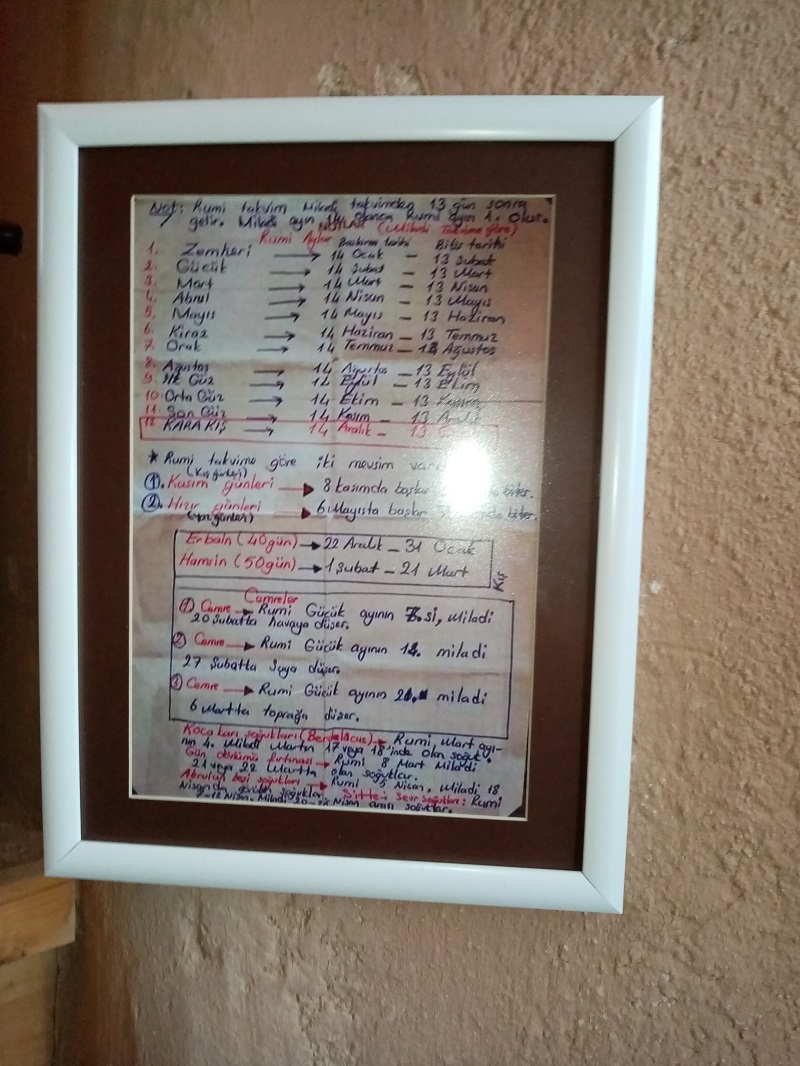 Not: Rumi takvim Miladi takvimden 13 gün sonra
gelir. Miladi ayın 14. Rumi ayın 1. olur.
(Miladi Takvime göre)
Rumi Aylar Başlama tarihi Bitiş tarihi
1. Zemheri → 14 Ocak – 13 Şubat
2. Gücük → 14 Şubat – 13 Mart
3. Mart → 14 Mart – 13 Nisan
4. Abrul → 14 Nisan – 13 Mayıs
5. Mayıs → 14 Mayıs – 13 Haziran
6. Kiraz → 14 Haziran – 13 Temmuz
7. Orak → 14 Temmuz – 13 Ağustos
8. Ağustos → 14 Ağustos – 13 Eylül
9. İlk Güz → 14 Eylül – 13 Ekim
10. Orta Güz → 14 Ekim – 13 Kasım
11. Son Güz → 14 Kasım – 13 Aralık
12. KARA KIŞ → 14 Aralık – 13
* Rumi takvime göre iki mevsim
(Kış günleri)
1. Kasım günleri → 8 kasımda başlar biter.
2. Hızır günleri → 6 Mayısta başlar biter.
(Yaz günleri)
Erbain (40gün) → 22 Aralık – 31 Ocak
Hamsin (50gün) → 1 Şubat – 21 Mart
Kış
Cemreler
1 Cemre → Rumi Gücük ayının 7.si, Miladi
20 Şubatta havaya düşer.
2 Cemre → Rumi Gücük ayının 14. miladi
27 Şubatta Suya düşer.
3 Cemre → Rumi Gücük ayının 21. miladi
6 Martta toprağa düşer.
Koca karı soğukları → Rumi, Mart ayı-
nın 4. Miladi Martın 17 veya 18'inde olan soğuk.
Gün dönümü fırtınası → Rumi 8 Mart Miladi
21 veya 22 Martta olan soğuklar.
Abrulun beşi soğukları → Rumi 5 Nisan, Miladi 18
Nisanda görülen soğuklar. Sitte-i Sevr soğukları: Rumi
7-12 Nisan. Miladi Nisan arası soğuklar.